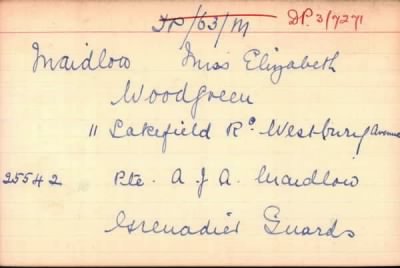 DP/63/M DP. 3/7271
Maidlow Miss Elizabeth
Woodgreen
11 Lakefield Rd. Westbury Avenue
25542 Pte. A. J. A. Maidlow
Grenadier Guards